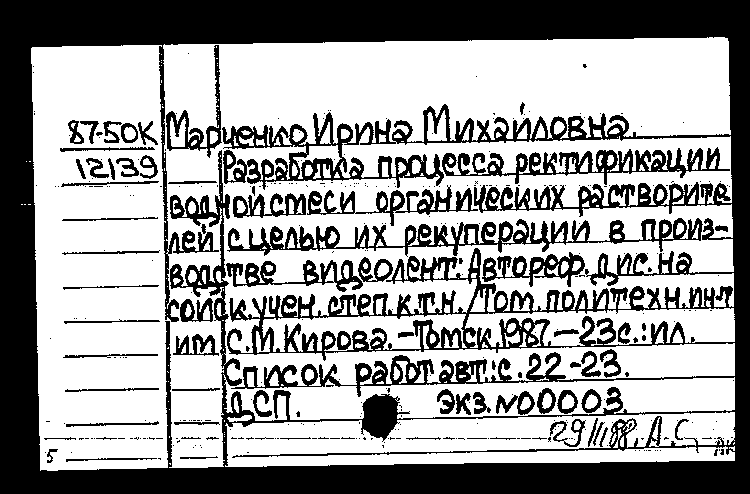 87-50К Марченко, Ирина Михайловна.
12139 Разработка процесса ректификации
водной смеси органических растворите
лей с целью их рекуперации в произ-
водстве видеолент: Автореф. дис. на
соиск. учен. степ. к.т.н. / Том. политехн. ин-т
им. С.М. Кирова. – Томск, 1987. – 23с.: ил.
Список работ авт.: с. 22-23.
ДСП. экз. №00003.
29 III 88. А.С.
5 АК